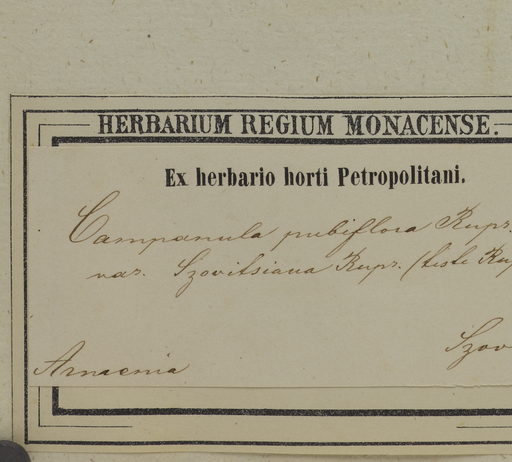 HERBARIUM REGIUM MONACENSE.
Ex herbario horti Petropolitani.
Campanula pubiflora Rupr.
var. Szovitsiana Rupr. (teste Rup
Szov
Armenia